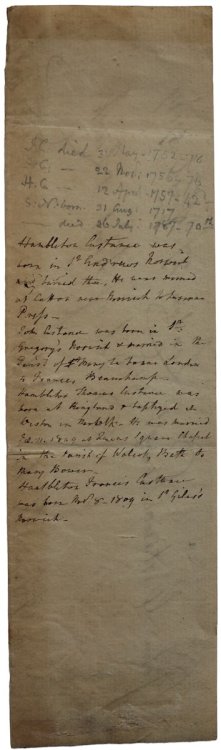 died 3 May - 1752 - 76
C. — 22 Nov. 1756 - 76
H. C. — 12 April - 1757 - 42
S. N. born 31 Aug. 1717
died 26 July. 1787 - 70th
Hambleton Custance was
born in St Andrews Norwich
and buried there, He was married
at Catton near Norwich to Susanna
Press -
John Custance was born in St
Gregory's, Norwich & married in the
Parish of St Mary le bone London
to Frances Beauchamp -
Hambleton Thomas Custance was
born at Ringland & baptized at
Weston in Norfolk - He was married
1809 at Queens Square Chapel
in the parish of Walcot, Bath to
Mary Bower -
Hambleton Francis Custance
was born Novr 8 - 1809 in St Giles's
Norwich -